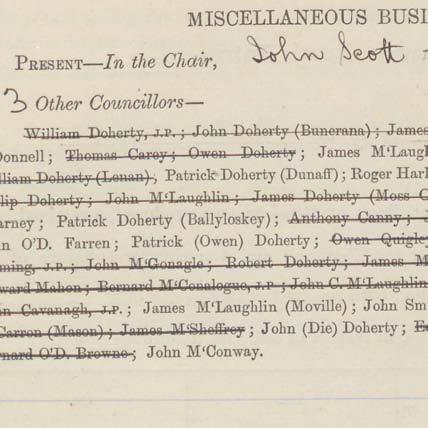 MISCELLANEOUS BUSI
PRESENT—In the Chair, John Scott
3 Other Councillors—
William Doherty, J.P.; John Doherty (Buncrana); James
Donnell; Thomas Carey; Owen Doherty; James M'Laugh
lliam Doherty (Lenan), Patrick Doherty (Dunaff); Roger Hark
ilip Doherty; John M'Laughlin; James Doherty (Moss C
arney; Patrick Doherty (Ballyloskey); Anthony Canny; J
n O'D. Farren; Patrick (Owen) Doherty; Owen Quigley
ming, J.P.; John M'Gonagle; Robert Doherty; James M
ward Mahon; Bernard M'Conalogue, J.P.; John C. M'Laughlin
n Cavanagh, J.P.; James M'Laughlin (Moville); John Sm
Carron (Mason); James M'Sheffrey; John (Die) Doherty; E
rnard O'D. Browne; John M'Conway.